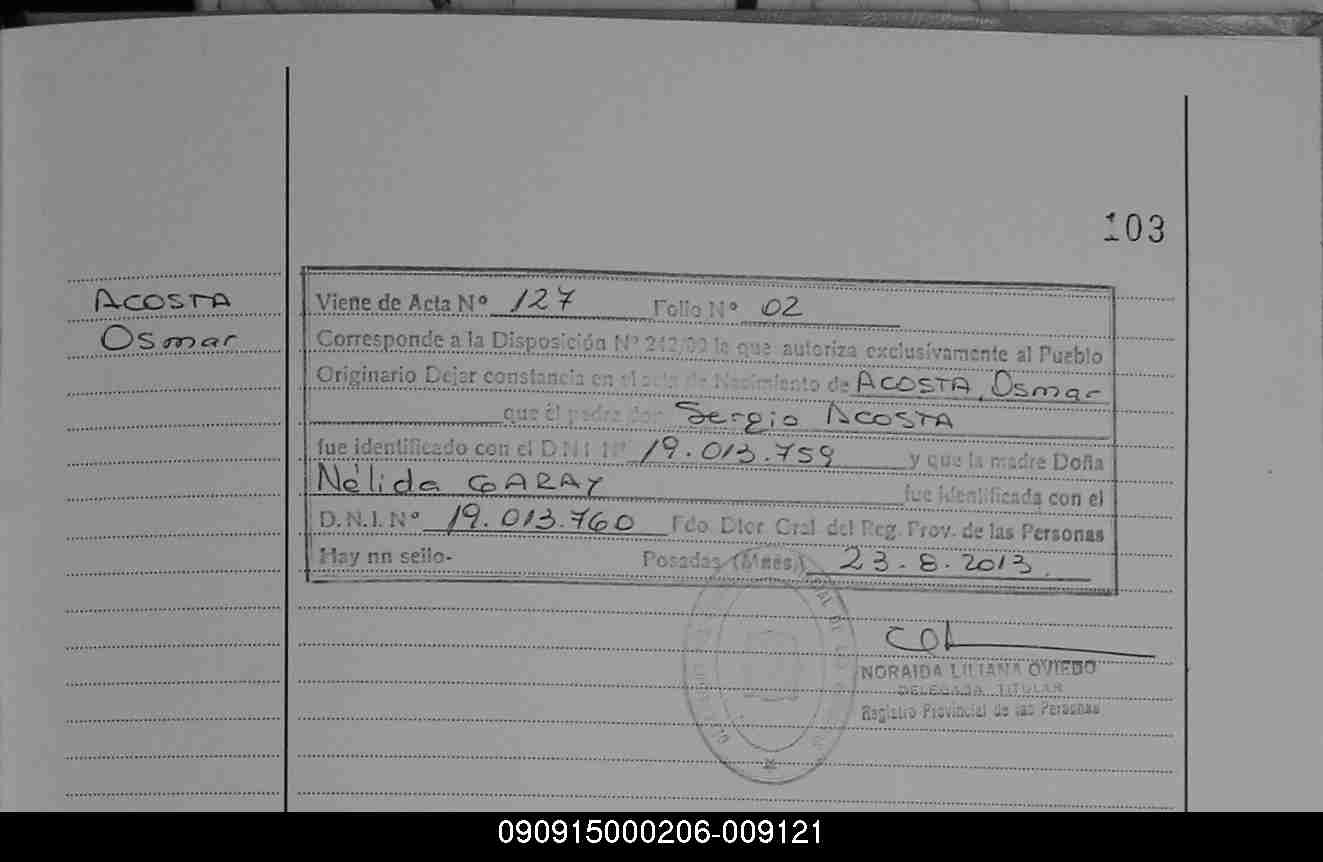 103
ACOSTA
Osmar
Viene de Acta Nº 127 Folio Nº 02
Corresponde a la Disposición Nº 242/00 la que autoriza exclusivamente al Pueblo
Originario Dejar constancia en el acta de Nacimiento de ACOSTA, Osmar
que él padre don Sergio ACOSTA
fue identificado con el D.N.I. Nº 19.013.759 y que la madre Doña
Nélida GARAY fue identificada con el
D.N.I. Nº 19.013.760 Fdo. Dtor. Gral. del Reg. Prov. de las Personas
Hay nn sello- Posadas (Mnes.) 23.8.2013.
NORAIDA LILIANA OVIEDO
DELEGADA TITULAR
Registro Provincial de las Personas
090915000206-009121